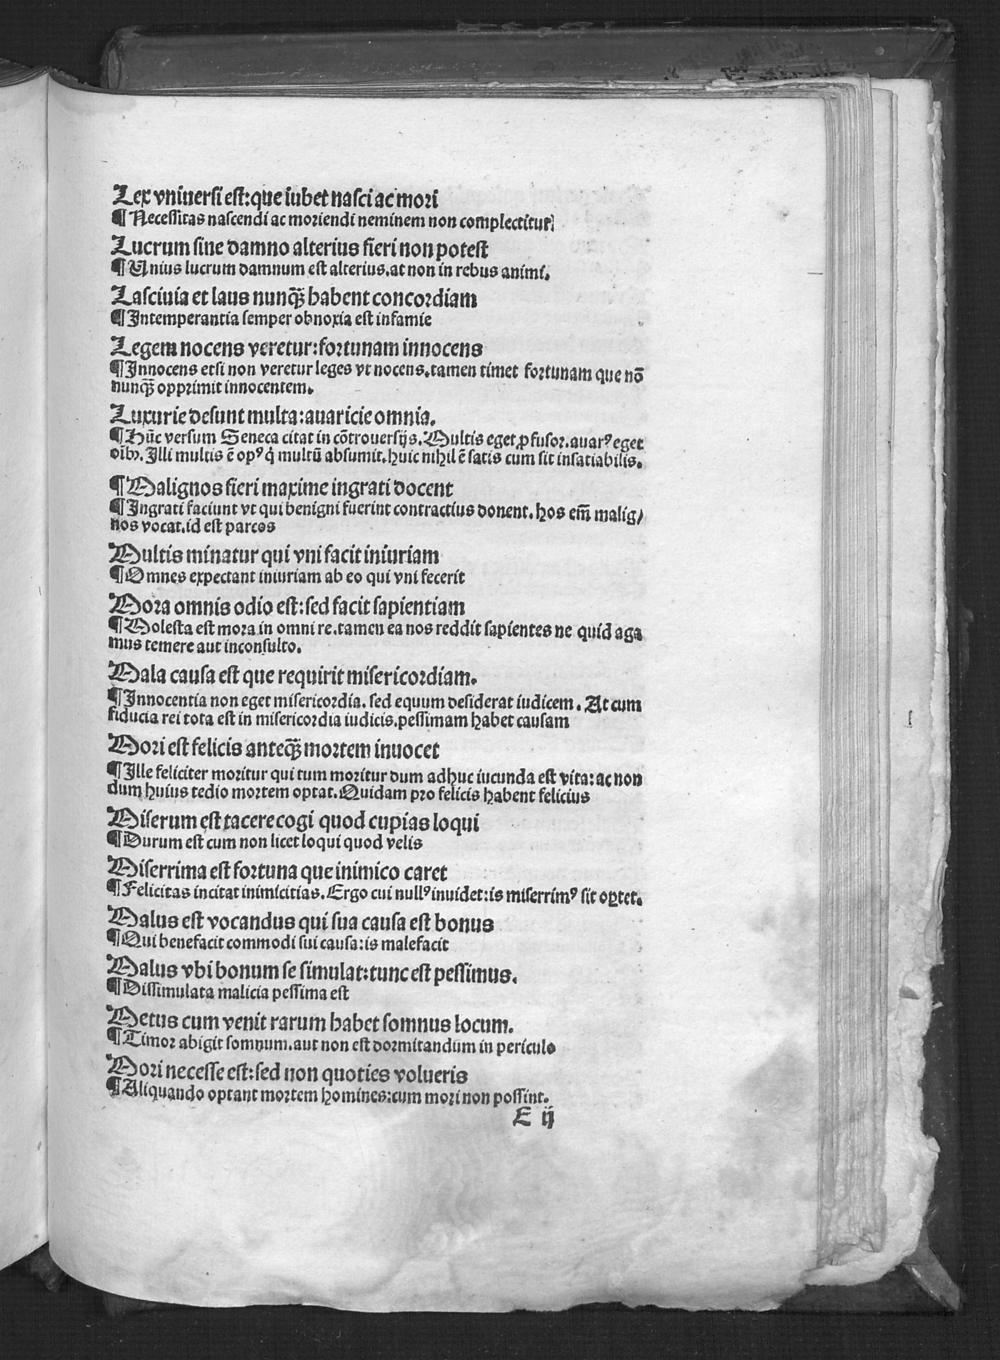 Lex vniuersi est: que iubet nasci ac mori
¶ Necessitas nascendi ac moriendi neminem non complectitur
Lucrum sine damno alterius fieri non potest
¶ Unius lucrum damnum est alterius. at non in rebus animi.
Lasciuia et laus nunq̃ habent concordiam
¶ Intemperantia semper obnoxia est infamie
Legem nocens veretur: fortunam innocens
¶ Innocens etsi non veretur leges vt nocens. tamen timet fortunam que nõ
nunq̃ opprimit innocentem.
Luxurie desunt multa: auaricie omnia.
¶ Hũc versum Seneca citat in cõtrouersijs. Multis eget ꝓfusor. auarꝰ eget
oĩbꝰ. Illi multis ẽ opꝰ q̇ multũ absumit. huic nihil ẽ satis cum sit insatiabilis.
¶ Malignos fieri maxime ingrati docent
¶ Ingrati faciunt vt qui benigni fuerint contractius donent. hos em̃ malig/
nos vocat. id est parcos
Multis minatur qui vni facit iniuriam
¶ Omnes expectant iniuriam ab eo qui vni fecerit
Mora omnis odio est: sed facit sapientiam
¶ Molesta est mora in omni re. tamen ea nos reddit sapientes ne quid aga
mus temere aut inconsulto.
Mala causa est que requirit misericordiam.
¶ Innocentia non eget misericordia. sed equum desiderat iudicem. At cum
fiducia rei tota est in misericordia iudicis. pessimam habet causam
Mori est felicis anteq̃ mortem inuocet
¶ Ille feliciter moritur qui tum moritur dum adhuc iucunda est vita: ac non
dum huius tedio mortem optat. Quidam pro felicis habent felicius
Miserum est tacere cogi quod cupias loqui
¶ Durum est cum non licet loqui quod velis
Miserrima est fortuna que inimico caret
¶ Felicitas incitat inimicitias. Ergo cui nullꝰ inuidet: is miserrimꝰ sit optet.
Malus est vocandus qui sua causa est bonus
¶ Qui benefacit commodi sui causa: is malefacit
Malus vbi bonum se simulat: tunc est pessimus.
¶ Dissimulata malicia pessima est
Metus cum venit rarum habet somnus locum.
¶ Timor abigit somnum. aut non est dormitandum in periculo
Mori necesse est: sed non quoties volueris
¶ Aliquando optant mortem homines: cum mori non possint.
E ij